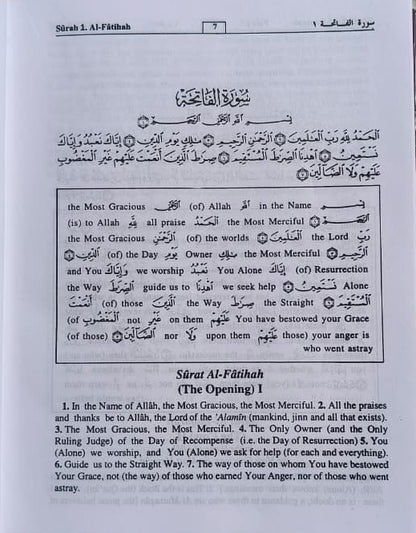 Sûrah 1. Al-Fâtihah 7 سورة الفاتحة ١
سُورَةُ الْفَاتِحَةِ
بِسْمِ اللَّهِ الرَّحْمَٰنِ الرَّحِيمِ ۝١
الْحَمْدُ لِلَّهِ رَبِّ الْعَالَمِينَ ۝٢ الرَّحْمَٰنِ الرَّحِيمِ ۝٣ مَالِكِ يَوْمِ الدِّينِ ۝٤ إِيَّاكَ نَعْبُدُ وَإِيَّاكَ
نَسْتَعِينُ ۝٥ اهْدِنَا الصِّرَاطَ الْمُسْتَقِيمَ ۝٦ صِرَاطَ الَّذِينَ أَنْعَمْتَ عَلَيْهِمْ غَيْرِ الْمَغْضُوبِ
عَلَيْهِمْ وَلَا الضَّالِّينَ ۝٧
the Most Gracious الرَّحْمَٰنِ (of) Allah اللَّهِ in the Name بِسْمِ
(is) to Allah لِلَّهِ all praise الْحَمْدُ the Most Merciful الرَّحِيمِ ۝١
the Most Gracious الرَّحْمَٰنِ (of) the worlds الْعَالَمِينَ ۝٢ the Lord رَبِّ
(of) الدِّينِ ۝٤ (of) the Day يَوْمِ Owner مَالِكِ the Most Merciful الرَّحِيمِ ۝٣
and You وَإِيَّاكَ we worship نَعْبُدُ You Alone إِيَّاكَ (of) Resurrection
the Way الصِّرَاطَ guide us to اهْدِنَا we seek help نَسْتَعِينُ ۝٥ Alone
أَنْعَمْتَ (of) those الَّذِينَ the Way صِرَاطَ the Straight الْمُسْتَقِيمَ ۝٦
(of الْمَغْضُوبِ not غَيْرِ on them عَلَيْهِمْ You have bestowed your Grace
(of those) الضَّالِّينَ ۝٧ nor وَلَا upon them عَلَيْهِمْ those) your anger is
who went astray
Sûrat Al-Fâtihah
(The Opening) I
1. In the Name of Allâh, the Most Gracious, the Most Merciful. 2. All the praises
and thanks be to Allâh, the Lord of the 'Alamîn (mankind, jinn and all that exists).
3. The Most Gracious, the Most Merciful. 4. The Only Owner (and the Only
Ruling Judge) of the Day of Recompense (i.e. the Day of Resurrection) 5. You
(Alone) we worship, and You (Alone) we ask for help (for each and everything).
6. Guide us to the Straight Way. 7. The way of those on whom You have bestowed
Your Grace, not (the way) of those who earned Your Anger, nor of those who went
astray.